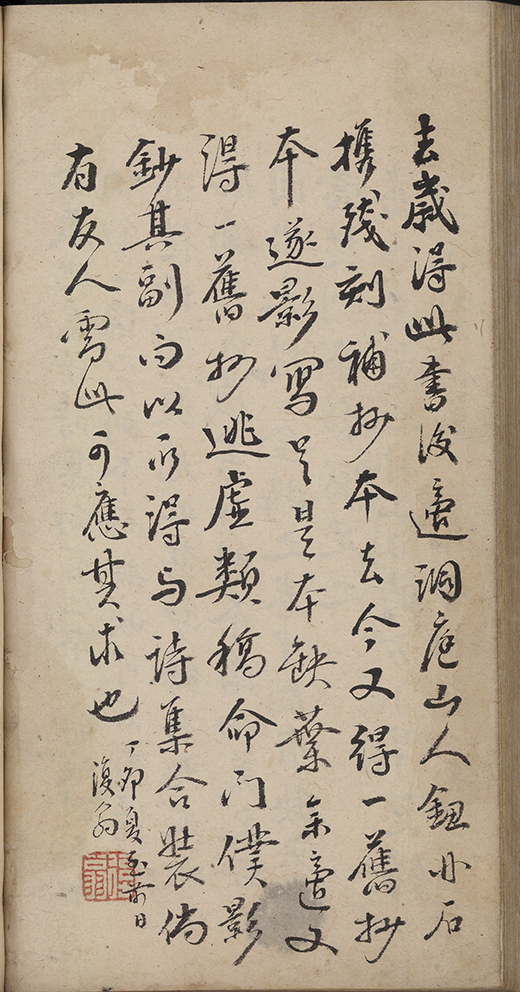 去歲得此書後適洞庭山人鈕非石
携殘刻補抄本去今又得一舊抄
本遂影寫足是本缺葉余適又
得一舊抄逃虛類稿命門僕影
鈔其副而以所得与詩集合裝倘
有友人需此可應其求也
丁卯夏至前日
復翁